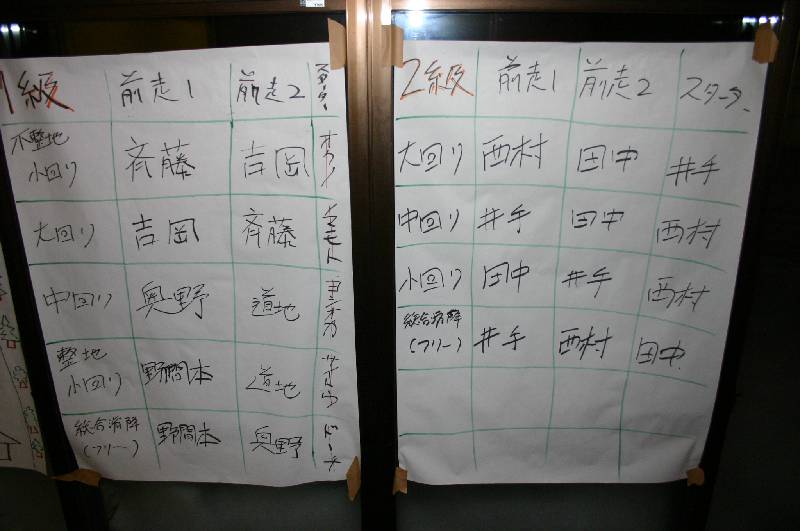 1級 前走1 前走2 スターター
不整地 小回り 斉藤 吉岡 オカノ
大回り 吉岡 斉藤
中回り 奥野 道地 ヨシオカ
整地 小回り 野間本 道地 サイトウ
総合滑降 (フリー) 野間本 奥野
2級 前走1 前走2 スターター
大回り 西村 田中 井手
中回り 井手 田中 西村
小回り 田中 井手 西村
総合滑降 (フリー) 井手 西村 田中